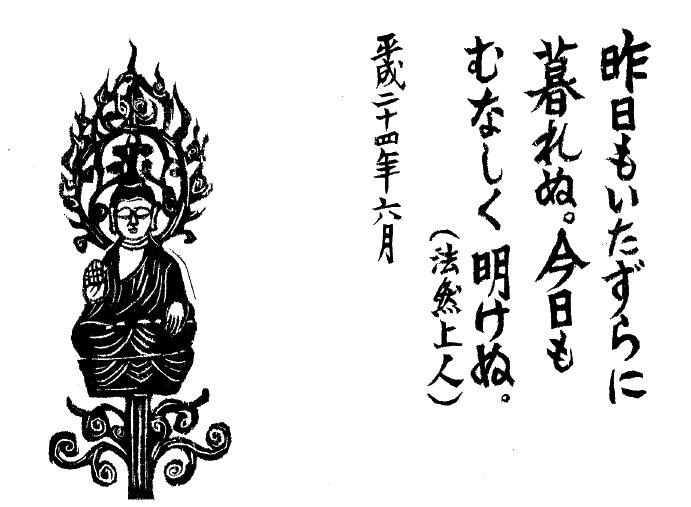 昨日もいたずらに
暮れぬ。今日も
むなしく明けぬ。
（法然上人）
平成二十四年六月